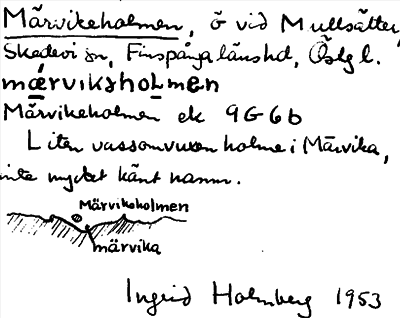 Märvikeholmen, ö vid Mullsätter,
Skedevi sn, Finspånga länshd, Östg l.
mærviksholmen
Märvikeholmen ek 9G6b
Liten vassomvuxen holme i Märvika,
inte mycket känt namn.
Märvikeholmen
märvika
Ingrid Holmberg 1953